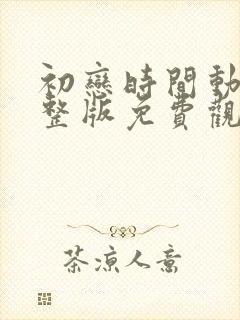 初戀時間動
整版免費觀
茶涼人意